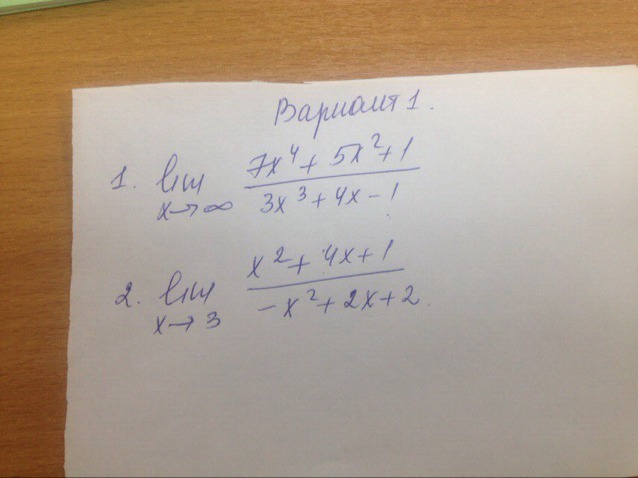 Вариант 1.
1. lim x→∞ (7x⁴ + 5x² + 1)/(3x³ + 4x - 1)
2. lim x→3 (x² + 4x + 1)/(-x² + 2x + 2)